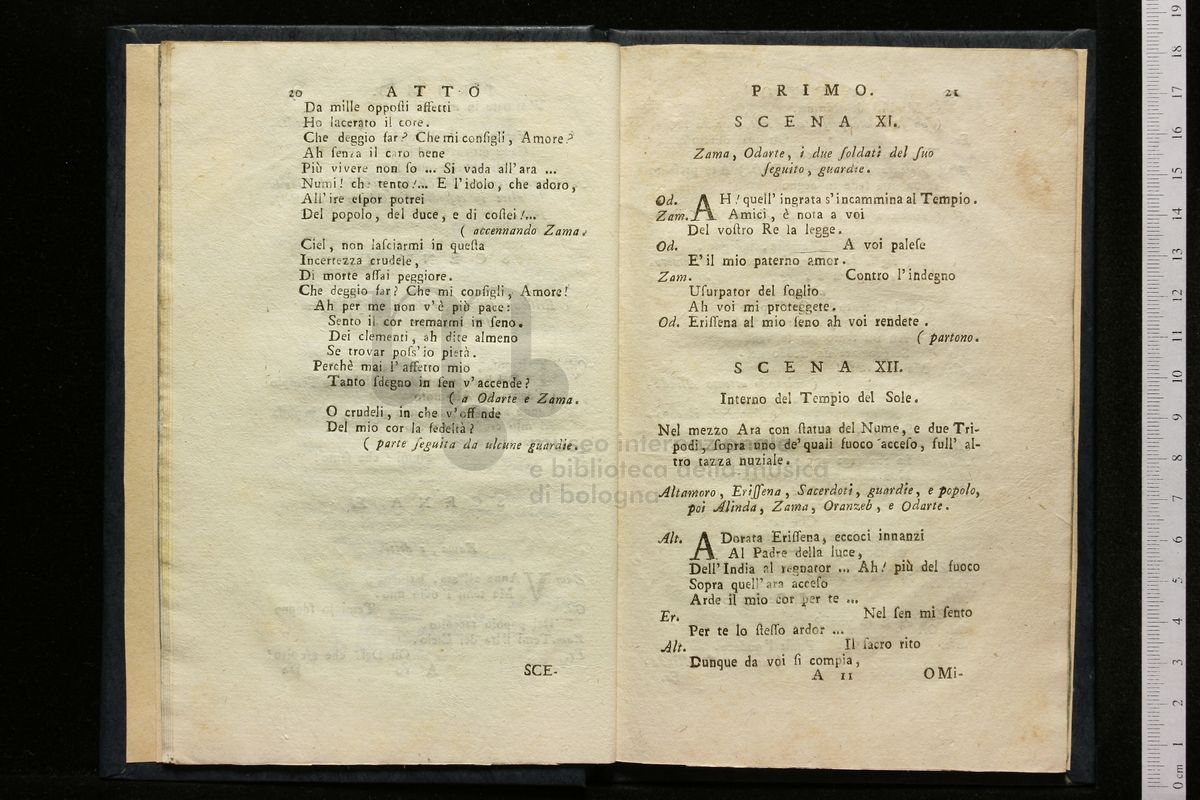 20 ATTO
Da mille opposti affetti
Ho lacerato il core.
Che deggio far? Che mi consigli, Amore?
Ah senza il caro bene
Più vivere non so ... Si vada all'ara ...
Numi! che tento!... E l'idolo, che adoro,
All'ire espor potrei
Del popolo, del duce, e di costei!...
( accennando Zama.
Ciel, non lasciarmi in questa
Incertezza crudele,
Di morte assai peggiore.
Che deggio far? Che mi consigli, Amore!
Ah per me non v'è più pace:
Sento il cor tremarmi in seno.
Dei clementi, ah dite almeno
Se trovar poss'io pietà.
Perchè mai l'affetto mio
Tanto sdegno in sen v'accende?
( a Odarte e Zama.
O crudeli, in che v'offende
Del mio cor la fedeltà?
( parte seguita da alcune guardie.
SCE-
PRIMO. 21
SCENA XI.
Zama, Odarte, i due soldati del suo
seguito, guardie.
Od. AH! quell'ingrata s'incammina al Tempio.
Zam. Amici, è nota a voi
Del vostro Re la legge.
Od. A voi palese
E' il mio paterno amor.
Zam. Contro l'indegno
Usurpator del soglio
Ah voi mi proteggete.
Od. Erissena al mio seno ah voi rendete.
( partono.
SCENA XII.
Interno del Tempio del Sole.
Nel mezzo Ara con statua del Nume, e due Tri-
podi, sopra uno de'quali fuoco acceso, sull' al-
tro tazza nuziale.
Altamoro, Erissena, Sacerdoti, guardie, e popolo,
poi Alinda, Zama, Oranzeb, e Odarte.
Alt. ADorata Erissena, eccoci innanzi
Al Padre della luce,
Dell'India al regnator ... Ah! più del fuoco
Sopra quell'ara acceso
Arde il mio cor per te ...
Er. Nel sen mi sento
Per te lo stesso ardor ...
Alt. Il sacro rito
Dunque da voi si compia,
A 11 OMi-
museo internazionale
e biblioteca della musica
di bologna
0 cm 1 2 3 4 5 6 7 8 9 10 11 12 13 14 15 16 17 18 19